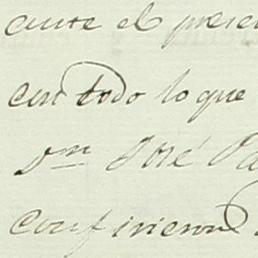 ante el presen
con todo lo que
Dn José Pa
confirieron